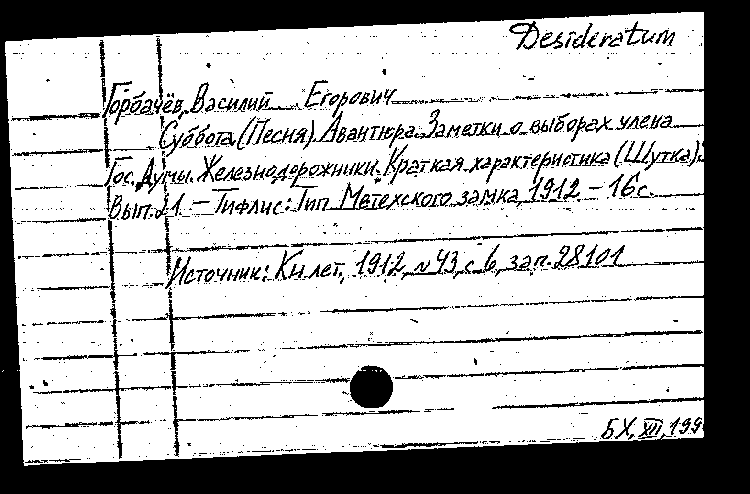 Desideratum
Горбачёв, Василий Егорович
Суббота (Песня). Авантюра. Заметки о выборах члена
Гос. Думы. Железнодорожники. Краткая характеристика (Шутка).
Вып. 21. – Тифлис: Тип. Метехского замка, 1912. – 16 с.
Источник: Кн. лет., 1912, № 43, с. 6, зап. 28101
БХ, XII, 199